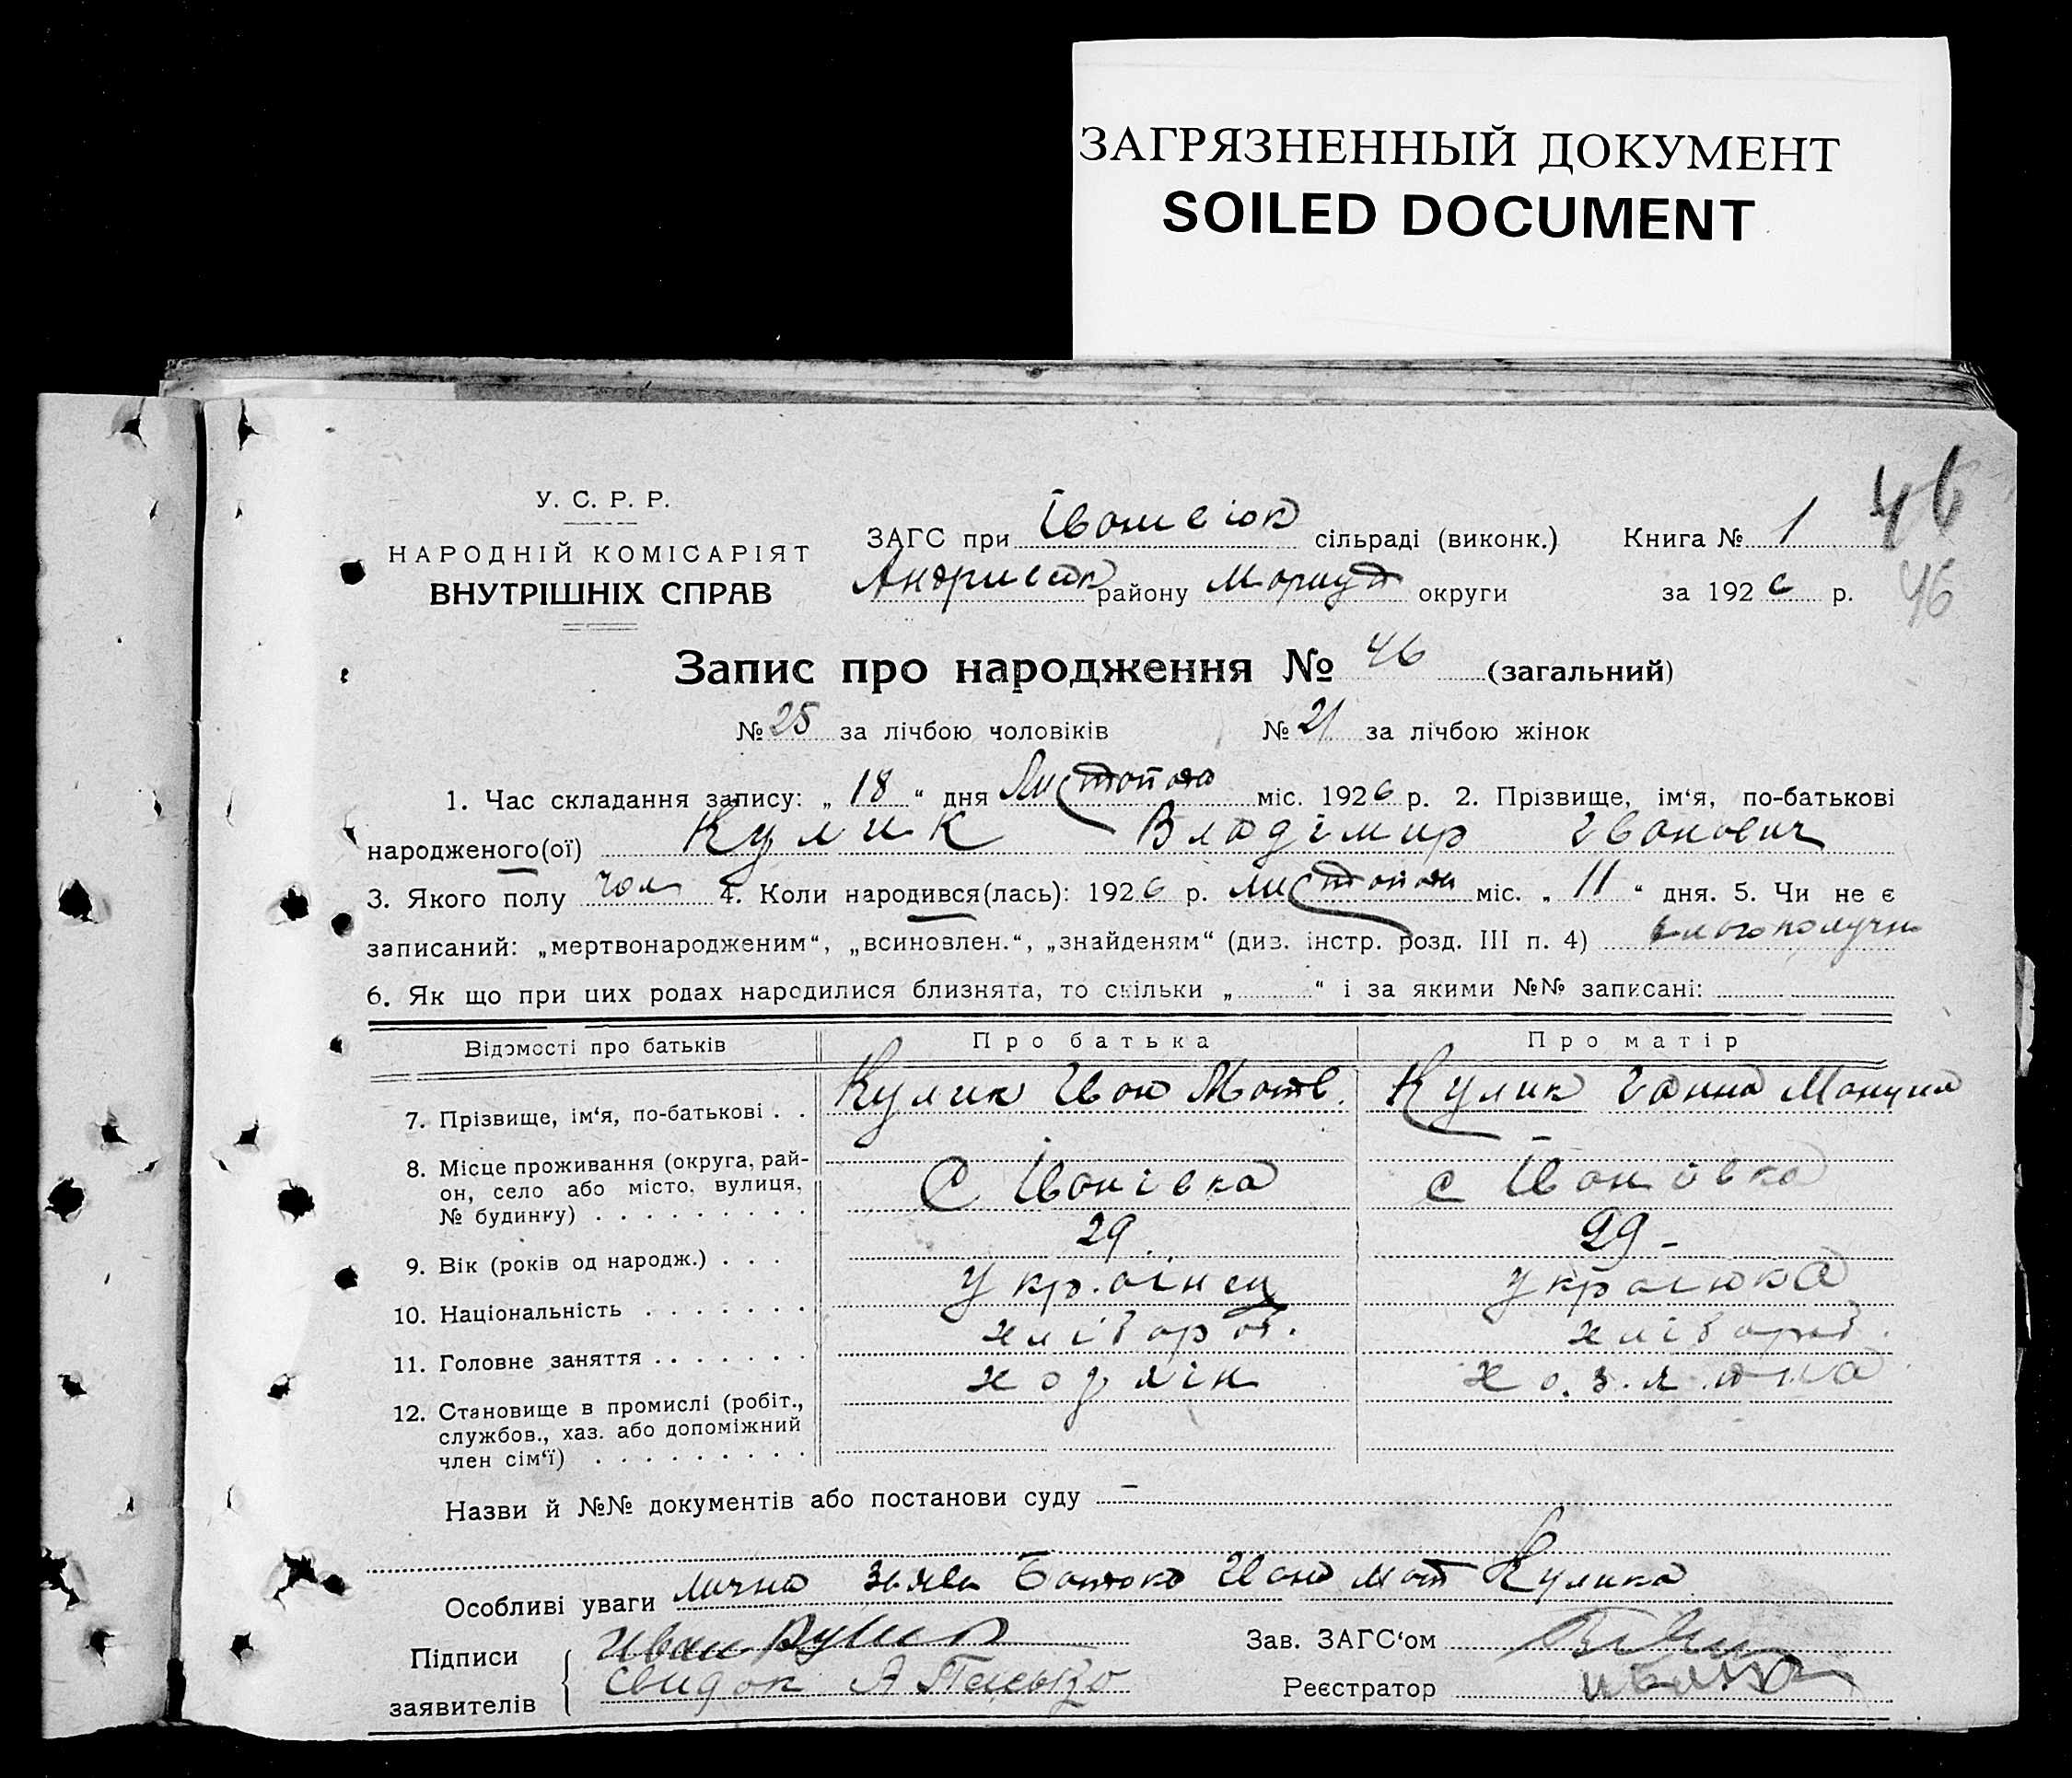 ЗАГРЯЗНЕННЫЙ ДОКУМЕНТ
SOILED DOCUMENT
46
46
У. С. Р. Р.
НАРОДНІЙ КОМІСАРІЯТ
ВНУТРІШНІХ СПРАВ
ЗАГС при сільраді (виконк.) Книга № 1
району округи за 1926 р.
Запис про народження № 46 (загальний)
№ 25 за лічбою чоловіків № 21 за лічбою жінок
1. Час складання запису: „ 18 “ дня Листопада міс. 1926 р. 2. Прізвище, ім‘я, по-батькові
народженого(ої) Кулик Владімир Іванович
3. Якого полу чол 4. Коли народився(лась): 1926 р. листопада міс. „ 11 “ дня. 5. Чи не є
записаний: „мертвонародженим“, „всиновлен.“, „знайденям“ (див. інстр. розд. III п. 4)
6. Як що при цих родах народилися близнята, то скільки „ “ і за якими №№ записані:
Відомості про батьків Про батька Про матір
7. Прізвище, ім‘я, по-батькові . . Кулик Иван Матв. Кулик Ганна
8. Місце проживання (округа, рай-
он, село або місто, вулиця, С Іванівка с Іванівка
№ будинку) . . . . . . . . .
9. Вік (років од народж.) . . . 29 29 -
10. Національність . . . . . . . українец українка
11. Головне заняття . . . . . . . хлібороб. хлібороб.
12. Становище в промислі (робіт., хозяін хозяйка
службов., хаз. або допоміжний
член сім‘ї) . . . . . . . . .
Назви й №№ документів або постанови суду -
Особливі уваги лична заява Батька Ивана мат Кулика
Підписи Иван Кулик Зав. ЗАГС‘ом
заявителів свидок А Реєстратор